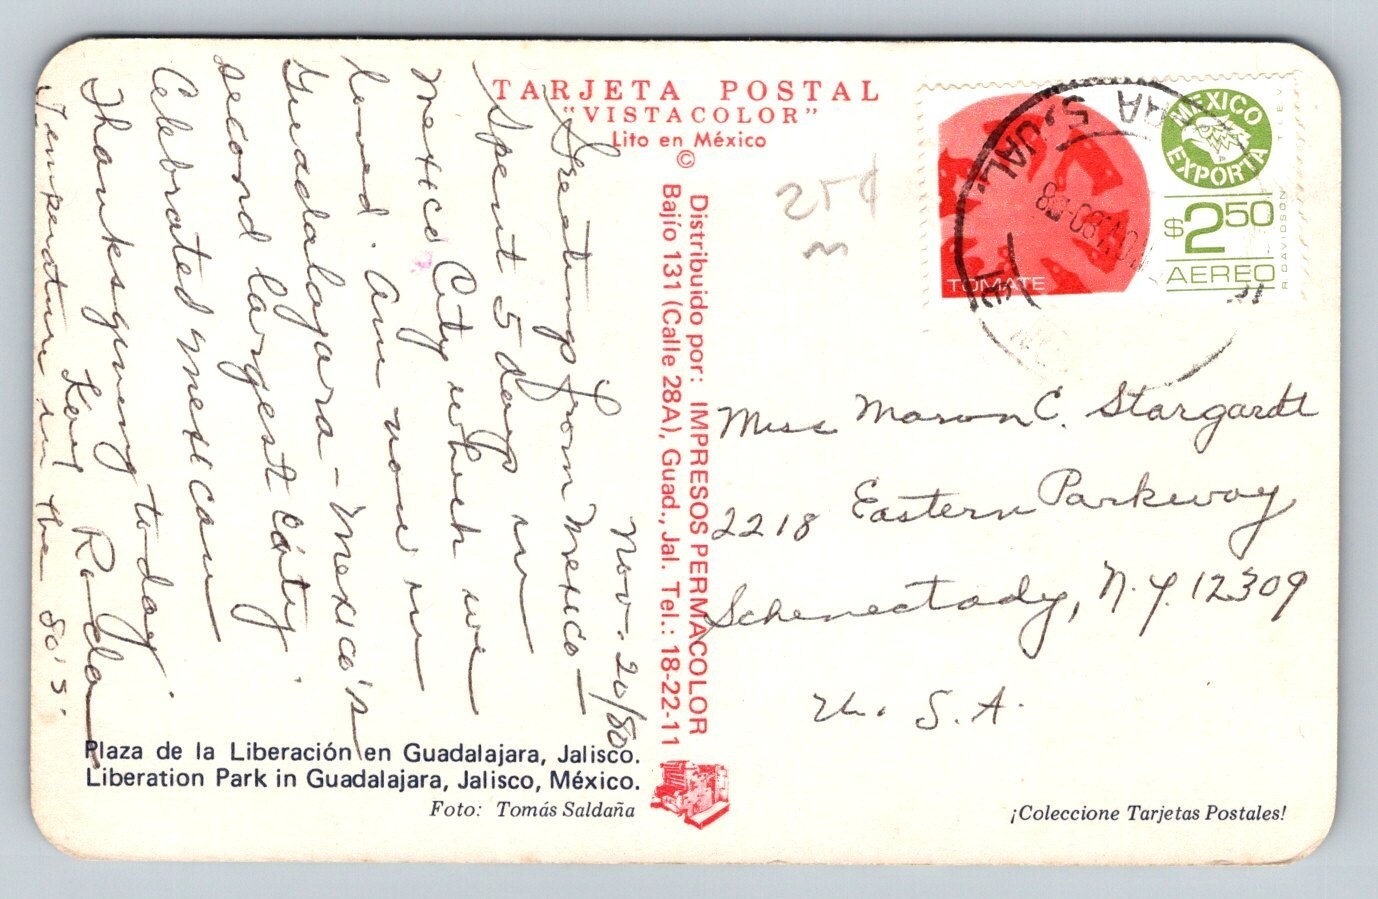 TARJETA POSTAL
"VISTACOLOR"
Lito en México
©
Distribuido por: IMPRESOS PERMACOLOR
Bajío 131 (Calle 28A), Guad., Jal. Tel.: 18-22-11
Nov. 20/80
Greetings from Mexico –
Spent 5 days in
Mexico City which we
loved. Am now in
Guadalajara – Mexico's
second largest city.
Celebrated Mexican
Thanksgiving today.
Temperature in the 80's.
25¢
MEXICO
EXPORTA
$2.50
AEREO
TOMATE
R. DAVIDSON
S, JAL.
Miss C. Stargardt
2218 Eastern Parkway
Schenectady, N.Y. 12309
U.S.A.
Plaza de la Liberación en Guadalajara, Jalisco.
Liberation Park in Guadalajara, Jalisco, México.
Foto: Tomás Saldaña
¡Coleccione Tarjetas Postales!